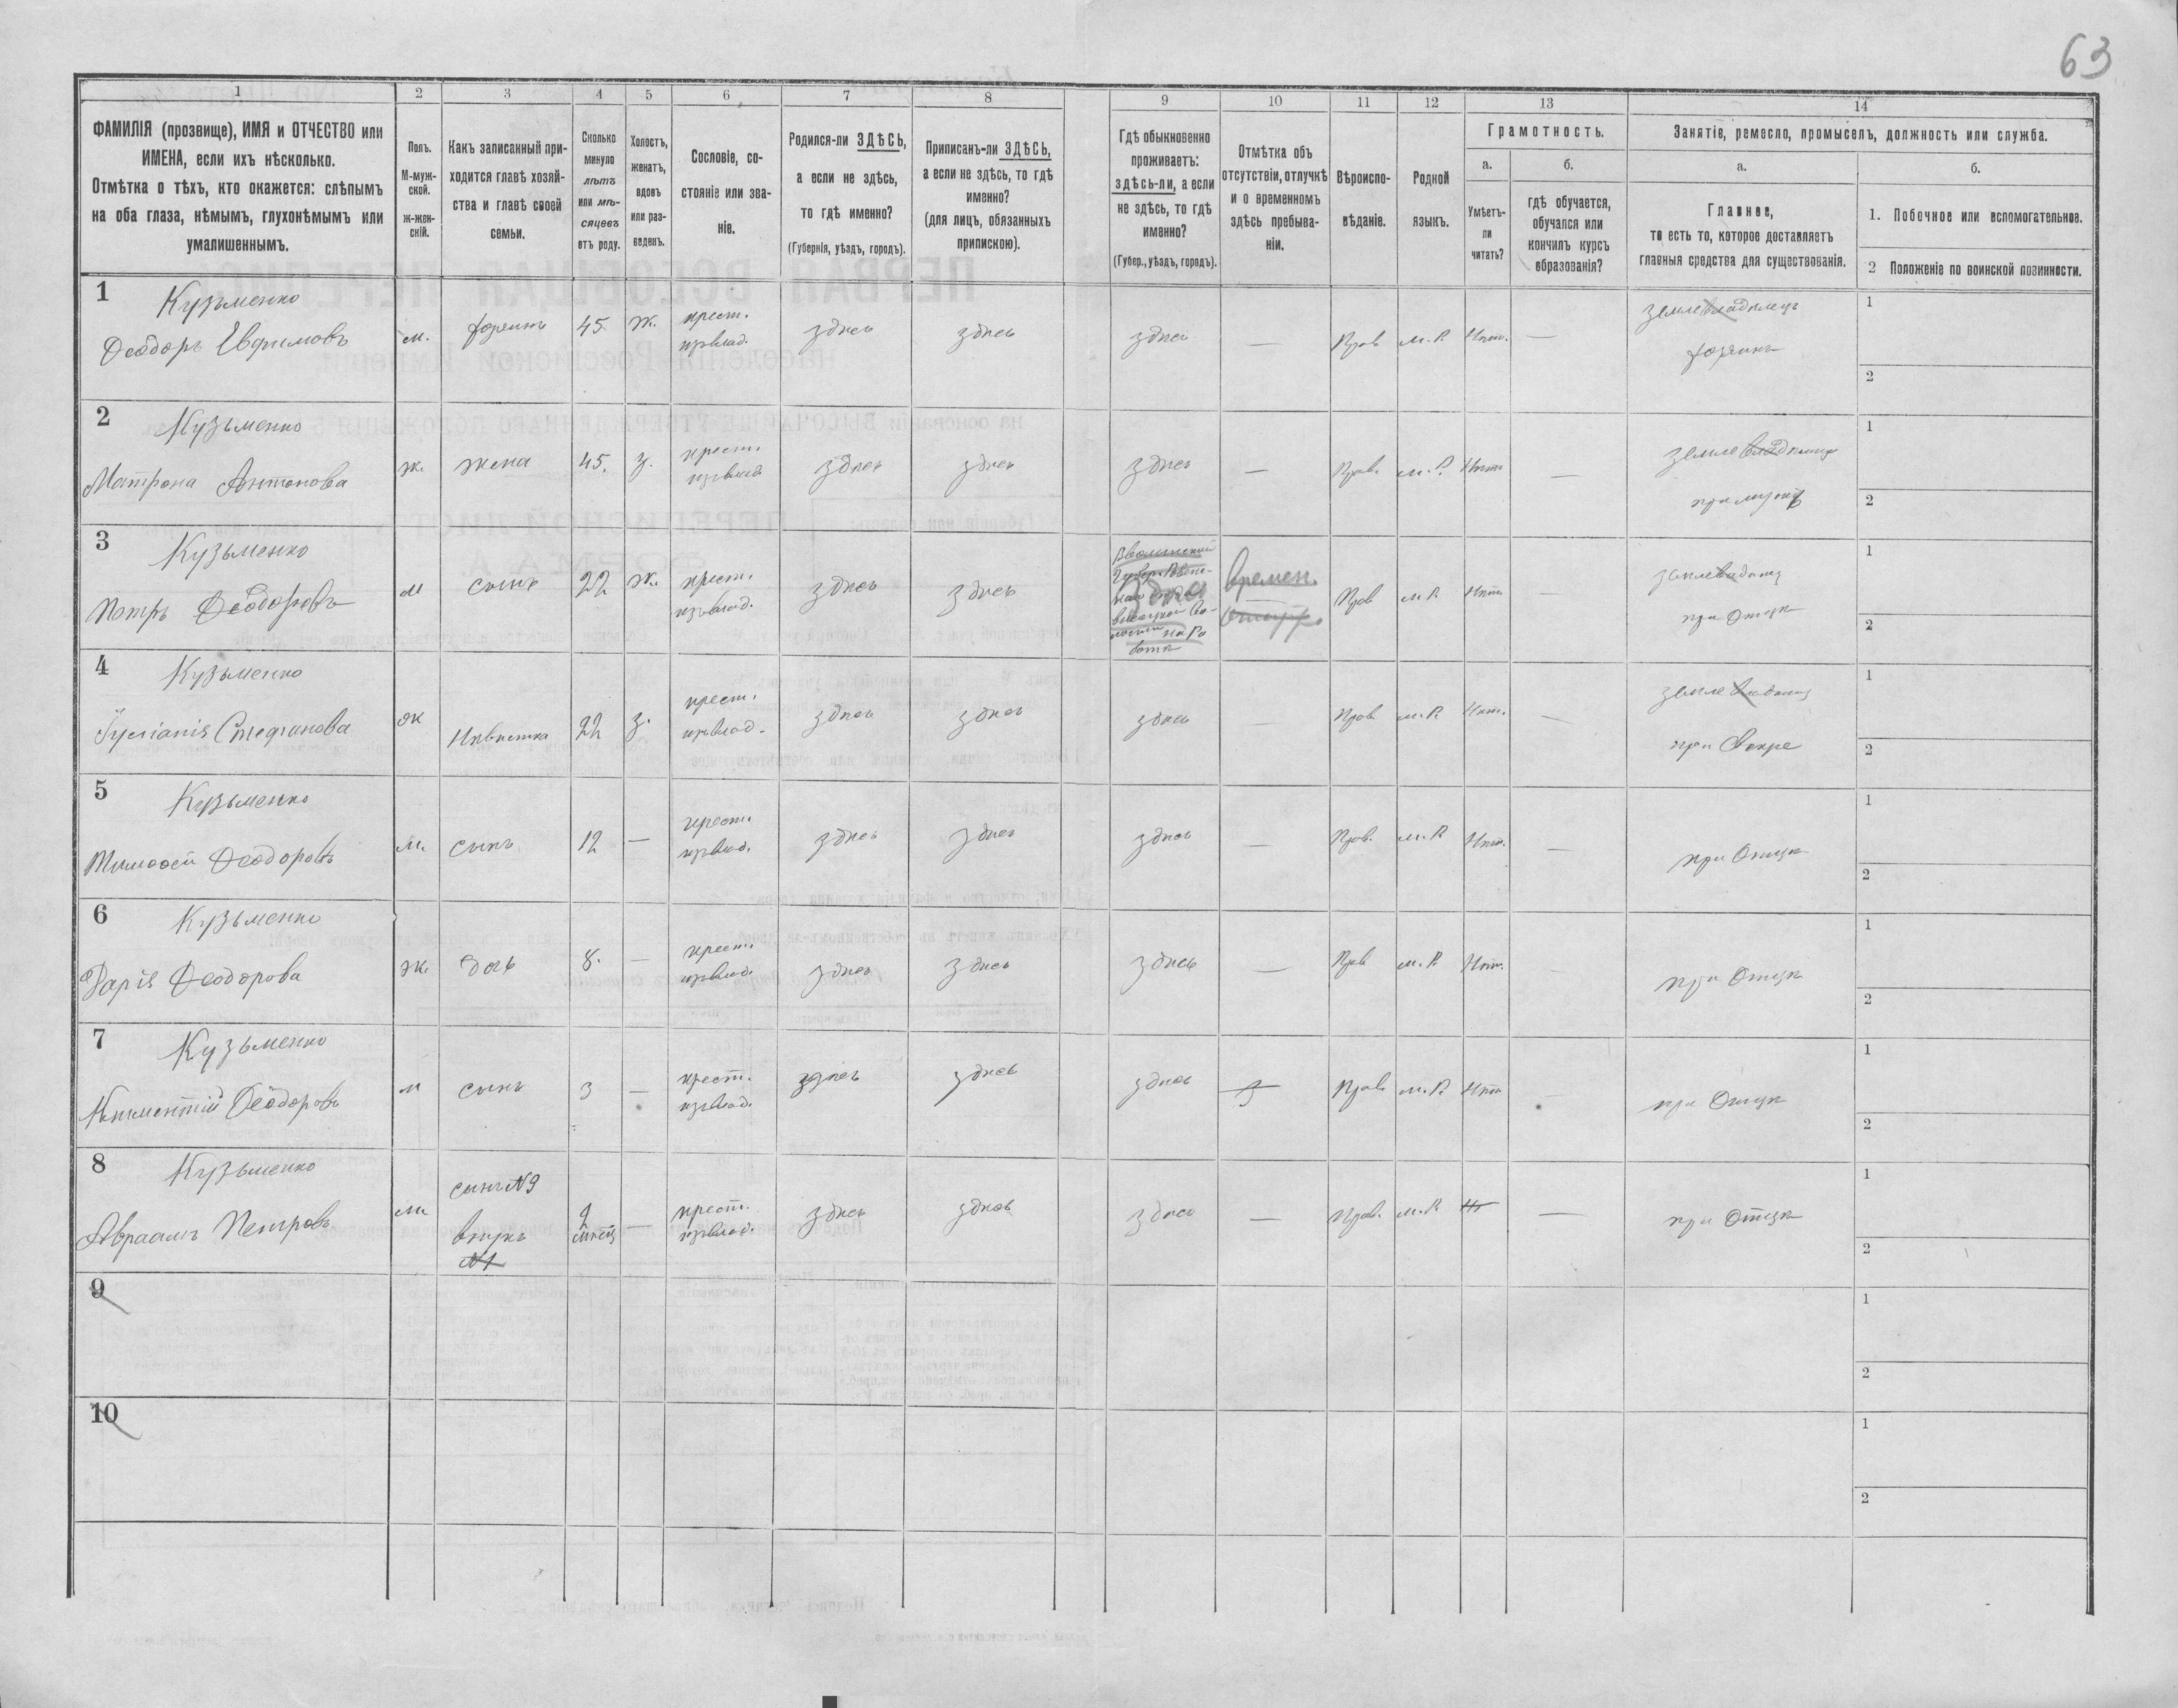 63
1
2
3
4
5
6
7
8
9
10
11
12
13
14
ФАМИЛІЯ (прозвище), ИМЯ и ОТЧЕСТВО или
ИМЕНА, если ихъ нѣсколько.
Отмѣтка о тѣхъ, кто окажется: слѣпымъ
на оба глаза, нѣмымъ, глухонѣмымъ или
умалишеннымъ.
Полъ.
М-муж-
ской.
ж-жен-
скій.
Какъ записанный при-
ходится главѣ хозяй-
ства и главѣ своей
семьи.
Сколько
минуло
лѣтъ
или мѣ-
сяцевъ
отъ роду.
Холостъ,
женатъ,
вдовъ
или раз-
веденъ.
Сословіе, со-
стояніе или зва-
ніе.
Родился-ли ЗДѢСЬ,
а если не здѣсь,
то гдѣ именно?
(Губернія, уѣздъ, городъ).
Приписанъ-ли ЗДѢСЬ,
а если не здѣсь, то гдѣ
именно?
(для лицъ, обязанныхъ
припискою).
Гдѣ обыкновенно
проживаетъ:
здѣсь-ли, а если
не здѣсь, то гдѣ
именно?
(Губер., уѣздъ, городъ).
Отмѣтка объ
отсутствіи, отлучкѣ
и о временномъ
здѣсь пребыва-
ніи.
Вѣроиспо-
вѣданіе.
Родной
языкъ.
Грамотность.
а.
Умѣетъ-
ли
читать?
б.
гдѣ обучается,
обучался или
кончилъ курсъ
образованія?
Занятіе, ремесло, промыселъ, должность или служба.
а.
Главное,
то есть то, которое доставляетъ
главныя средства для существованія.
б.
1. Побочное или вспомогательное.
2 Положеніе по воинской повинности.
1
Кузьменко
Ѳеодоръ Евфимовъ
м.
хозяинъ
45
ж.
крест.
изъ влад.
здѣсь
здѣсь
здѣсь
—
Прав
м. Р.
Нѣт.
—
землевладѣлецъ
хозяинъ
1
2
2
Кузьменко
Матрона Антонова
ж.
жена
45.
з.
крест.
изъ влад
здѣсь
здѣсь
здѣсь
—
Прав.
м. Р.
Нѣт
—
при мужѣ
1
2
3
Кузьменко
Петръ Ѳеодоровъ
м
сынъ
22
ж.
крест.
изъ влад.
здѣсь
здѣсь
времен.
Прав
м. Р.
Нѣт.
—
при Отцѣ
1
2
4
Кузьменко
Стефанова
ж
Невѣстка
22
з.
крест.
изъ влад.
здѣсь
здѣсь
здѣсь
—
Прав
м. Р.
Нѣт.
—
при Свекре
1
2
5
Кузьменко
Тимофей Ѳеодоровъ
м.
сынъ
12
—
крест.
изъ влад.
здѣсь
здѣсь
здѣсь
—
Прав.
м. Р.
Нѣт.
—
при Отцѣ
1
2
6
Кузьменко
Дарія Ѳеодорова
ж.
дочь
8.
—
крест.
изъ влад.
здѣсь
здѣсь
здѣсь
—
Прав
м. Р.
Нѣт.
при Отцѣ
1
2
7
Кузьменко
Ѳеодоровъ
м
сынъ
3
—
крест.
изъ влад.
здѣсь
здѣсь
здѣсь
Прав
м. Р.
Нѣт
—
при Отцѣ
1
2
8
Кузьменко
Авраамъ Петровъ
м.
сынъ N3
внукъ
N1
9
мѣсяц
—
крест.
изъ влад.
здѣсь
здѣсь
здѣсь
—
Прав.
м. Р.
—
при Отцѣ
1
2
9
1
2
10
1
2